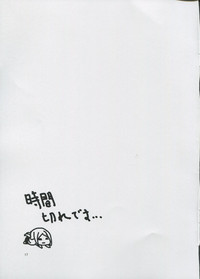 時間
切れでま...